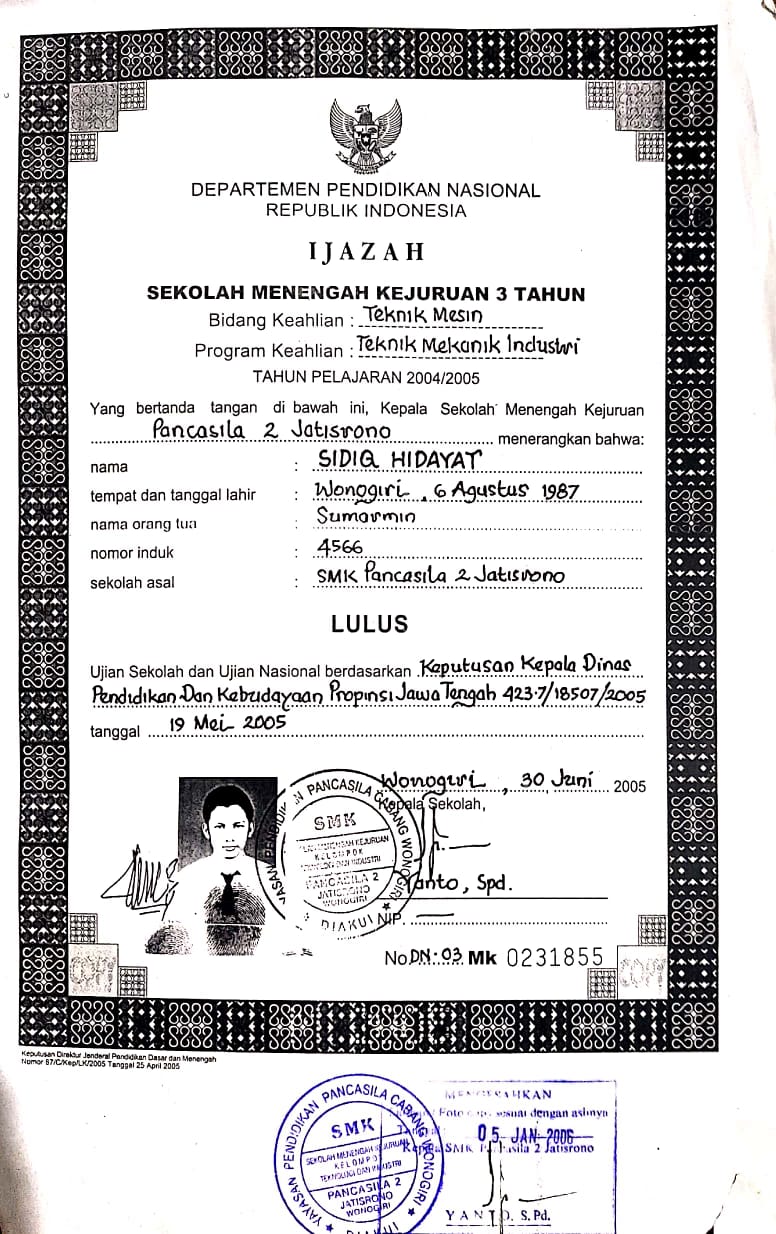 DEPARTEMEN PENDIDIKAN NASIONAL
REPUBLIK INDONESIA
IJAZAH
SEKOLAH MENENGAH KEJURUAN 3 TAHUN
Bidang Keahlian : Teknik Mesin
Program Keahlian : Teknik Mekanik Industri
TAHUN PELAJARAN 2004/2005
Yang bertanda tangan di bawah ini, Kepala Sekolah Menengah Kejuruan
Pancasila 2 Jatisrono menerangkan bahwa:
nama : SIDIQ HIDAYAT
tempat dan tanggal lahir : Wonogiri, 6 Agustus 1987
nama orang tua : Sumarmin
nomor induk : 4566
sekolah asal : SMK Pancasila 2 Jatisrono
LULUS
Ujian Sekolah dan Ujian Nasional berdasarkan Keputusan Kepala Dinas
Pendidikan Dan Kebudayaan Propinsi Jawa Tengah 423.7/18507/2005
tanggal 19 Mei 2005
Wonogiri, 30 Juni 2005
Kepala Sekolah,
YAYASAN PENDIDIKAN PANCASILA CABANG WONOGIRI
SMK
SEKOLAH MENENGAH KEJURUAN
KELOMPOK
TEKNOLOGI DAN INDUSTRI
PANCASILA 2
JATISRONO
WONOGIRI
DIAKUI
Yanto, Spd.
NIP.
No. DN: 03 Mk 0231855
COPY COPY
Keputusan Direktur Jenderal Pendidikan Dasar dan Menengah
Nomor 87/C/Kep/LK/2005 Tanggal 25 April 2005
YAYASAN PENDIDIKAN PANCASILA CABANG WONOGIRI
SMK
SEKOLAH MENENGAH KEJURUAN
KELOMPOK
TEKNOLOGI DAN INDUSTRI
PANCASILA 2
JATISRONO
WONOGIRI
DIAKUI
MENGESAHKAN
Foto copy sesuai dengan aslinya
05 JAN 2006
Kepala SMK Pancasila 2 Jatisrono
YANTO. S.Pd.